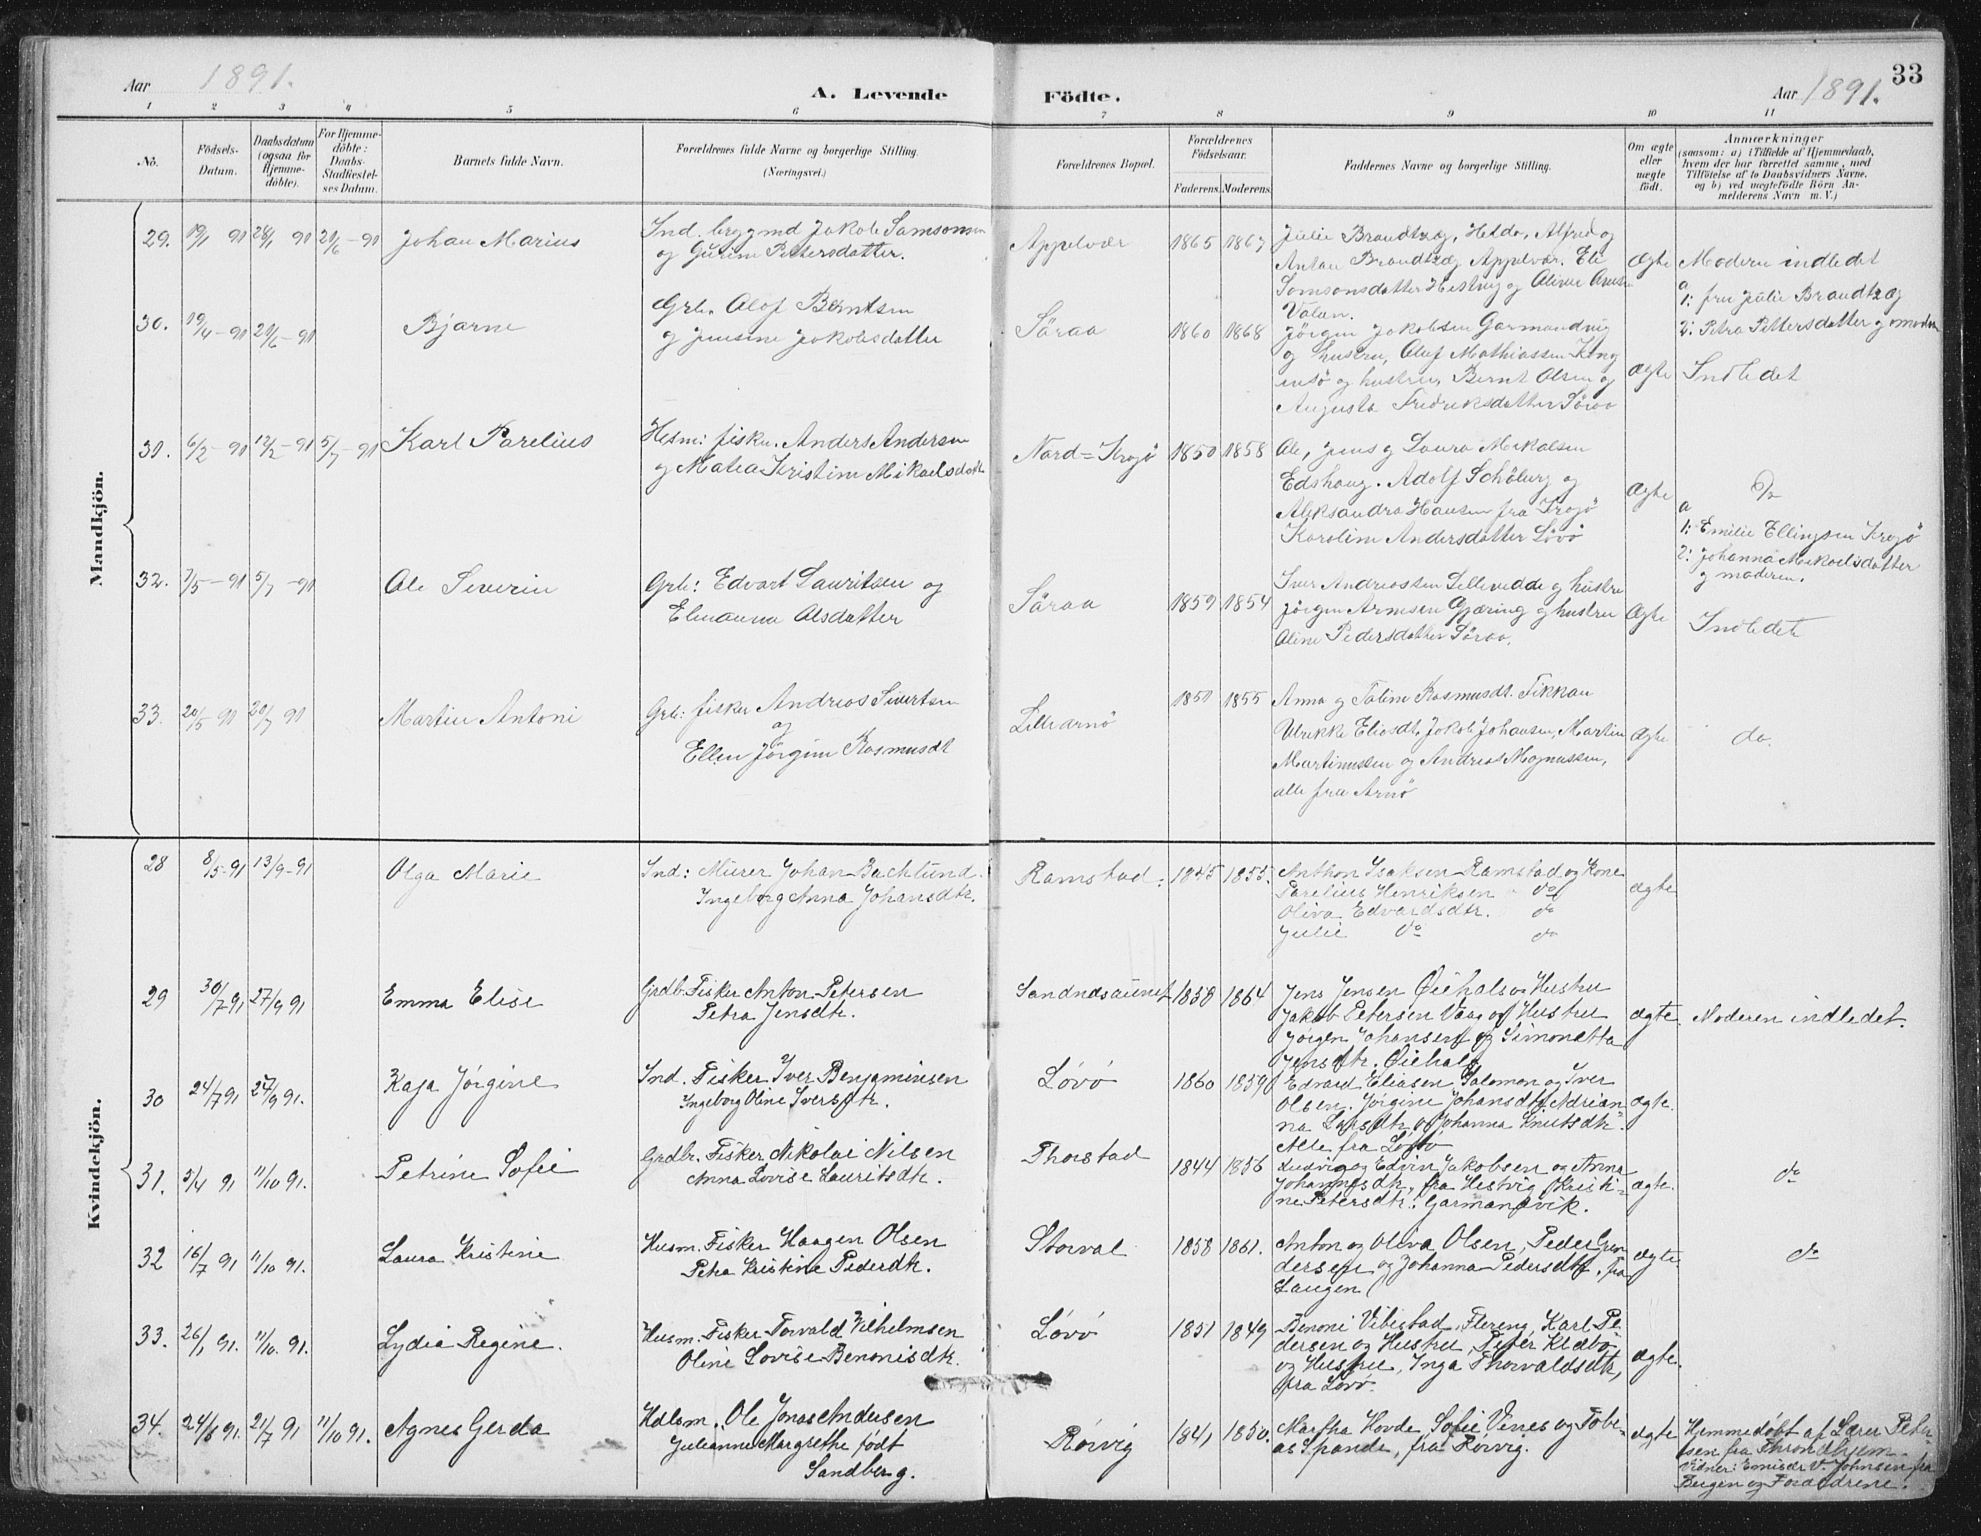 Aar 1891.
A. Levende
Födte.
Aar 1891.
33
1 2 3 4 5 6 7 8 9 10 11
No.
Födsels-
Datum.
Daabsdatum
(ogsaa for
Hjemme-
döbte).
For Hjemme-
döbte:
Daabs-
Stadfæstel-
ses Datum.
Barnets fulde Navn.
Forældrenes fulde Navne og borgerlige Stilling.
(Næringsvei.)
Forældrenes Bopæl.
Forældrenes
Födselsaar.
Faderens. Moderens.
Faddernes Navne og borgerlige Stilling.
Om ægte
eller
uægte
födt.
Anmærkninger
(saasom: a) i Tilfælde af Hjemmedaab,
hvem der har forrettet samme, med
Tilföielse af to Daabsvidners Navne,
og b) ved uægtefödte Börn An-
melderens Navn m. V.)
Mandkjön.
29. 19/1 91 28/1 91 21/6 - 91
Johan Marius
Ind. Jakob Samsonsen
og Gurine Pettersdatter.
Appelvær
1865 1867
Julie Brandtzæg, Helda, Alfred og
Anton Brandtzæg Appelvær. Eli
Samsonsdatter Hestvig og Oliver
Valan.
Ægte
Moderen indledet
a
1: fru Julie Brandtzæg
2: Petra Pettersdatter og moderen
30. 19/4 - 91 21/6 - 91
Bjarne
Grb. Olof Berntsen
og Jensine Jakobsdatter
Säraa
1860 1868
Jørgen Jakobsen Garmandvig
og hustru, Oluf Mathiassen
og hustru, Bernt Olsen og
Augusta Fredriksdatter Søraa
Ægte
Indledet
30. 6/2 - 91 12/2 - 91 5/7 - 91
Karl Parelius
Husm: fisker. Anders Andersen
og Matea Kristine Mikaelsdatter
Nord-Krøjö
1850 1858
Ole, Jens og Laura Mikalsen
Edshaug. Adolf Schölberg og
Aleksandra Hansen fra Krøjö
Karoline Andersdatter Løvö
Ægte
Do
a
1: Emilie Ellingsen Krøjö
2: Johanna Mikaelsdatter
og moderen.
32. 7/5 - 91 5/7 - 91
Ole Severin
Grb: Edvart Lauritsen og
Elenanna Olsdatter
Säraa
1859 1854
Iver Andreassen Lillevedde og hustru
Jörgen Arntsen Gjæring og hustru
Oline Pedersdatter Søraa.
Ægte
Indledet
33. 20/5 91 20/7 91
Martin Antoni
Grb: fisker Andreas Sivertsen
og
Ellen Jörgine Rasmusdt
Lillearnö
1850 1855
Anna og Taline Rasmusdt. Fikkan
Ulrikke Eliasdt, Jakob Johansen, Martin
Martinussen og Andreas Magnussen,
alle fra Arnö
Ægte
do.
Kvindekjön.
28 8/5-91 13/9-91
Olga Marie
Ind: Murer Johan Bachlund.
Ingeborg Anna Johansdtr.
Ramstad:
1845 1855.
Anthon Isaksen Ramstad og Kone
Parelius Henriksen do
Oliva Edvardsdtr. do
Julie do do
ægte
29 30/7 91 27/9 91
Emma Elise
Grdb. Fisker Anton Petersen
Petra Jensdtr.
Sandnesaunet
1858 1864
Jens Jensen Øiehals og Hustru
Jakob Petersen Vaag og Hustru
Jørgen Johansen og Simonetta
Jensdtr. Øiehals
ægte
Moderen indledet.
30 24/7 91 27/9 91.
Kaja Jørgine
Ind. Fisker Iver Benjaminsen
Ingeborg Oline Iversdtr.
Løvö
1860 1859
Edvard Eliasen, Salomon og Iver
Olsen. Jørgine Johansdtr, Adrian-
na Larsdtr og Johanna Knutsdtr.
Alle fra Løvö
ægte.
31. 5/4 91 11/10 91.
Petrine Sofie
Grdbr. Fisker Nikolai Nilsen
Anna Lovise Lauritsdtr.
Thorstad
1844 1856
Ludvig og Edvin Jakobsen og Anna
Johannesdtr, fra Hestvig, Kristi-
ne Petersdtr: Garmandvik.
ægte.
do
32 16/7 91 11/10 91.
Laura Kristine
Husm. Fisker Haagen Olsen
Petra Kristine Pederdtr.
Storval
1858 1861.
Anton og Oliva Olsen, Peder
dersen og Johanna Pedersdtr, fra
Laugen
ægte
do
33. 26/1 91. 11/10. 91.
Lydia Regine.
Husm. Fisker Torvald Vilhelmsen
Oline Lovise Benonisdtr.
Løvö
1851 1849
Benoni Vibestad, Flereng, Karl Pe-
dersen og Hustru, Peter Klæbö
og Hustru, Inga Thorvaldsdtr,
fra Løvö.
ægte.
34. 24/6 91. 21/7 91 11/10 91.
Agnes Gerda
Hdlsm. Ole Jonas Andersen
Julianne Margrethe født
Sandberg.
Rörvig
1841 1850.
Martha Hovde, Sofie Venes og Tobi-
as Spande, fra Rörvig.
ægte
Hjemmedøbt af Lærer Peter-
sen fra Throndhjem.
Vidner: Emisær V. Johnsen fra
Bergen og Forældrene.